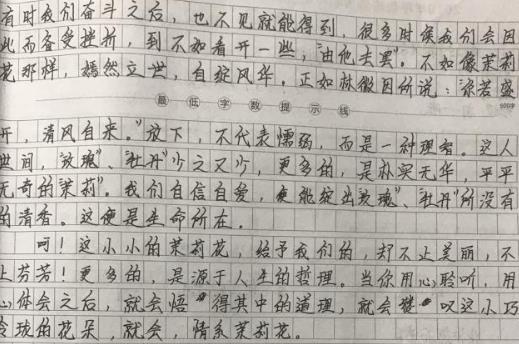 有时我们奋斗之后，也不见就能得到，很多时候我们会因
此而备受挫折，到不如看开一些，“由他去罢”。不如像茉莉
花那样，嫣然立世，自绽风华。正如林徽因所说：“你若盛
最低字数提示线
开，清风自来。”放下，不代表懦弱，而是一种理智。这人
世间，“玫瑰”、“牡丹”少之又少，更多的，是朴实无华，平平
无奇的“茉莉”。我们自信自爱，便能绽出“玫瑰”、“牡丹”所没有
的清香。这便是生命所在。
呵！这小小的茉莉花，给予我们的，却不止美丽，不
止芬芳！更多的，是源于人生的哲理。当你用心聆听，用
心体会之后，就会悟得其中的道理，就会叹这小巧
玲珑的花朵，就会，情系茉莉花。